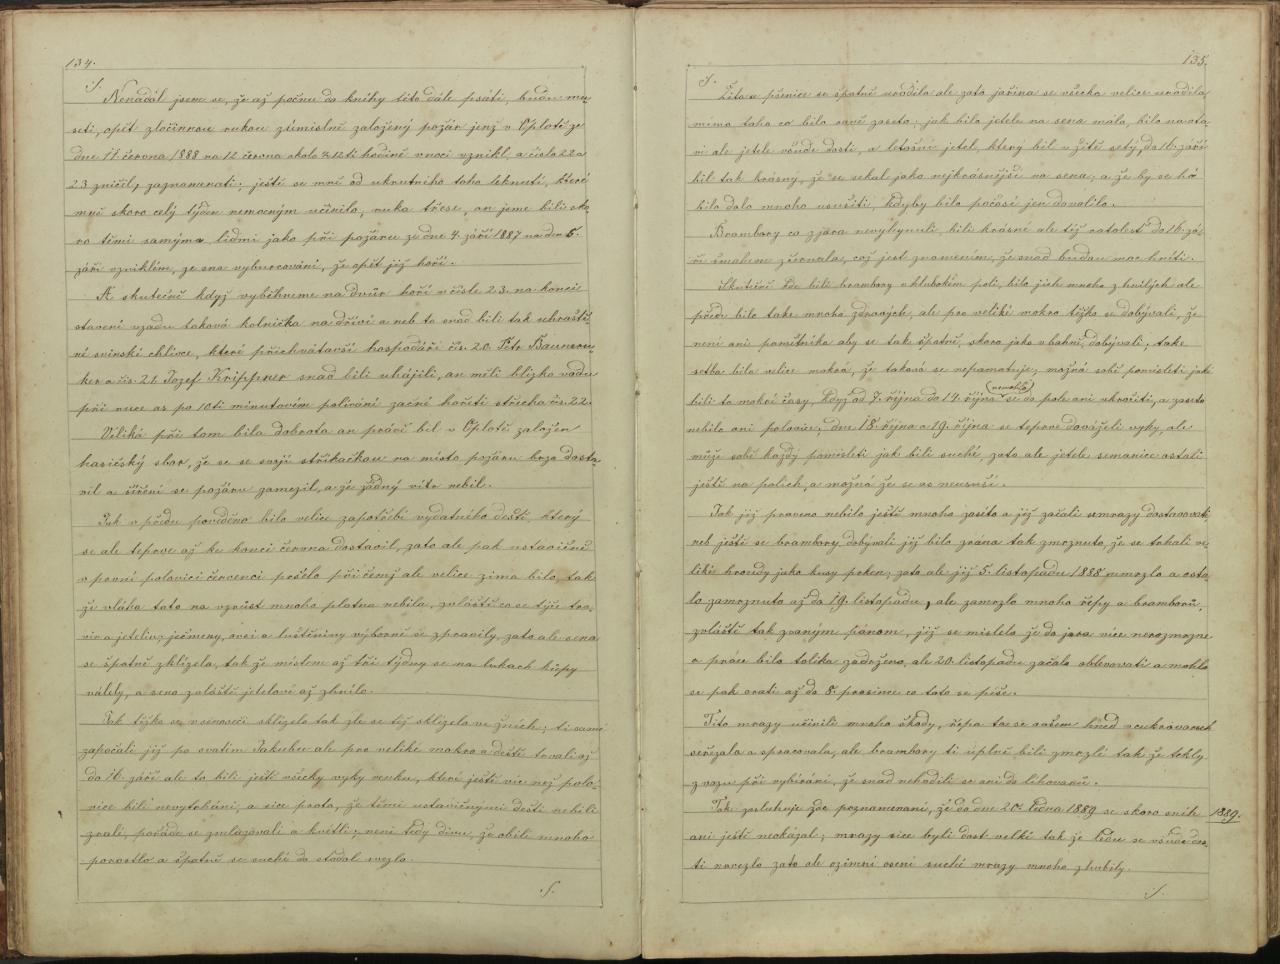 134.
Nenadál jsem se, že až počnu do knihy této dále psáti, budu mu-
seti, opět zločinnou rukou zúmislně založený požár jenž v Oplotě ze
dne 11 června 1888 na 12 června okolo ¾12ti hodině v noci vznikl, a čísla 22 a
23 zničil, zaznamenati; ještě se mně od ukrutného toho leknutí, které
mně skoro celý týden nemocným učinilo, ruka třese, an jsme bili sko-
ro těmi samýma lidmi jako při požáru ze dne 4. září 1887 na den 5.
září vzniklém, ze sna vyburcováni, že opět již hoří.
A skutečně když vyběhneme na dvůr hoří v čísle 23. na konci
stavení vzadu taková kolnička na dříví a neb to snad bili tak
né svinski chlívce, které přichvátavší hospodáři čís. 20. Petr Baumru-
ker a čís. 21. Jozef Krippner snad bili uhájili, an měli blízko vodu
při ruce as po 10ti minutovém polívání začně hořeti střecha čís. 22.
Veliká při tom bila dobrota an právě bil v Oplotě založen
hasičský sbor, že se se svojí stříkačkou na místo požáru brzo dosta-
vil a šíření se požáru zamezil, a že žádný vítr nebil.
Jak v předu povídčno bilo velice zapotřebí vydatného deště, který
se ale teprve až ke konci června dostavil, zato ale pak ustavičně
v první polovici červenci pršelo při čemž ale velice zima bilo, tak
že vláha tato na vzrůst mnoho platna nebila, zvláště co se týče trá-
vi a jetelin; ječmeny, ovsi a luštěniny výborně se zpravily, zato ale sena
se špatně sklízela, tak že místem až tři týdny se na lukach kupy
válely, a seno zvláště jetelové až zhnilo.
Jak těžko se v senoseči sklízelo tak zle se též sklízelo ve žních; ti samé
započali již po svatím Jakubu ale pro veliké mokro a deště trvali až
do 16. září ale to bili ještě všecky vyky venku, které ještě víc než polo-
vice bili nevytrháni, a sice proto, že těmi ustavičnými dešti nebili
zralí, pořáde se zmlazovali a kvítli; není tedy divu, že obilí mnoho
porostlo a špatně se suché do stodol svezlo.
135.
Žito a pšenice se špatně urodila ale zato jařina se všecka velice urodila
mimo toho co bilo raně zaseto; jak bilo jetele na sena málo, bilo na ota-
vi ale jetele všude dosti, a letošní jetel, který bil v žitě setý, do 16. září
bil tak krásný, že se sekal jako nejkrásnější na sena; a že by se bi
bilo dalo mnoho usušiti, kdyby bilo počasí jen dovolilo.
Brambory co zjara nevyhynuli, bili krásné ale též ratolesť do 16. zá-
ří šmahem zčernala, což jest znamením, že snad budou moc hníti.
Skutečně kde bili brambory v hlubokém poli, bilo jich mnoho zhnilých ale
předci bilo take mnoho zdravých, ale pro veliké mokro těžko se dobývali, že
není ani pamětníka aby se tak špatně, skoro jako v bahně, dobývali, také
setba bila velice mokrá, že taková se nepamatuje; možná sobě pomisleti jak
bili to mokré časy, když od 7. října do 14. října (nemohlo) se do pole ani vkročiti, a zaseto
nebilo ani polovic; dne 18. října a 19. října se teprvé dováželi vyky, ale
může sobě každý pomisleti jak bili suché, zato ale jetele semenice ostali
ještě na polích, a možná že se as neusuší.
Jak již praveno nebilo ještě mnoho zasíto a již začali se mrazy dostavovati,
neb ještě se brambory dobývali již bilo zrána tak zmrznuto, že se trhali ve-
liké hroudy jako kusy prken; zato ale již 5. listopadu 1888 umrzlo a osta-
lo zamrznuto až do 19. listopadu, ale zamrzlo mnoho řepy a bramborů,
zvláště tak zvaným pánom, již se mislelo že do jara více nerozmrzne
a práce bilo tolika zadrženo, ale 20. listopadu začalo oblevovati a mohlo
se pak orati až do 8. prosince co toto se píše.
Tito mrazy učinili mnoho škody, řepa ta se ovšem hned v cukrovarech
seřezala a spracovala, ale brambory ti úplně bili zmrzlé tak že tekly
z vozu při vybírání, že snad nehodili se ani do lihovarů.
Take zasluhuje zde poznamenaní, že do dne 20. ledna 1889 se skoro sníh
1889.
ani ještě neokázal; mrazy sice byli dost velké tak že ledu se všude dos-
ti navezlo zato ale ozimní osení suché mrazy mnoho zhubily.